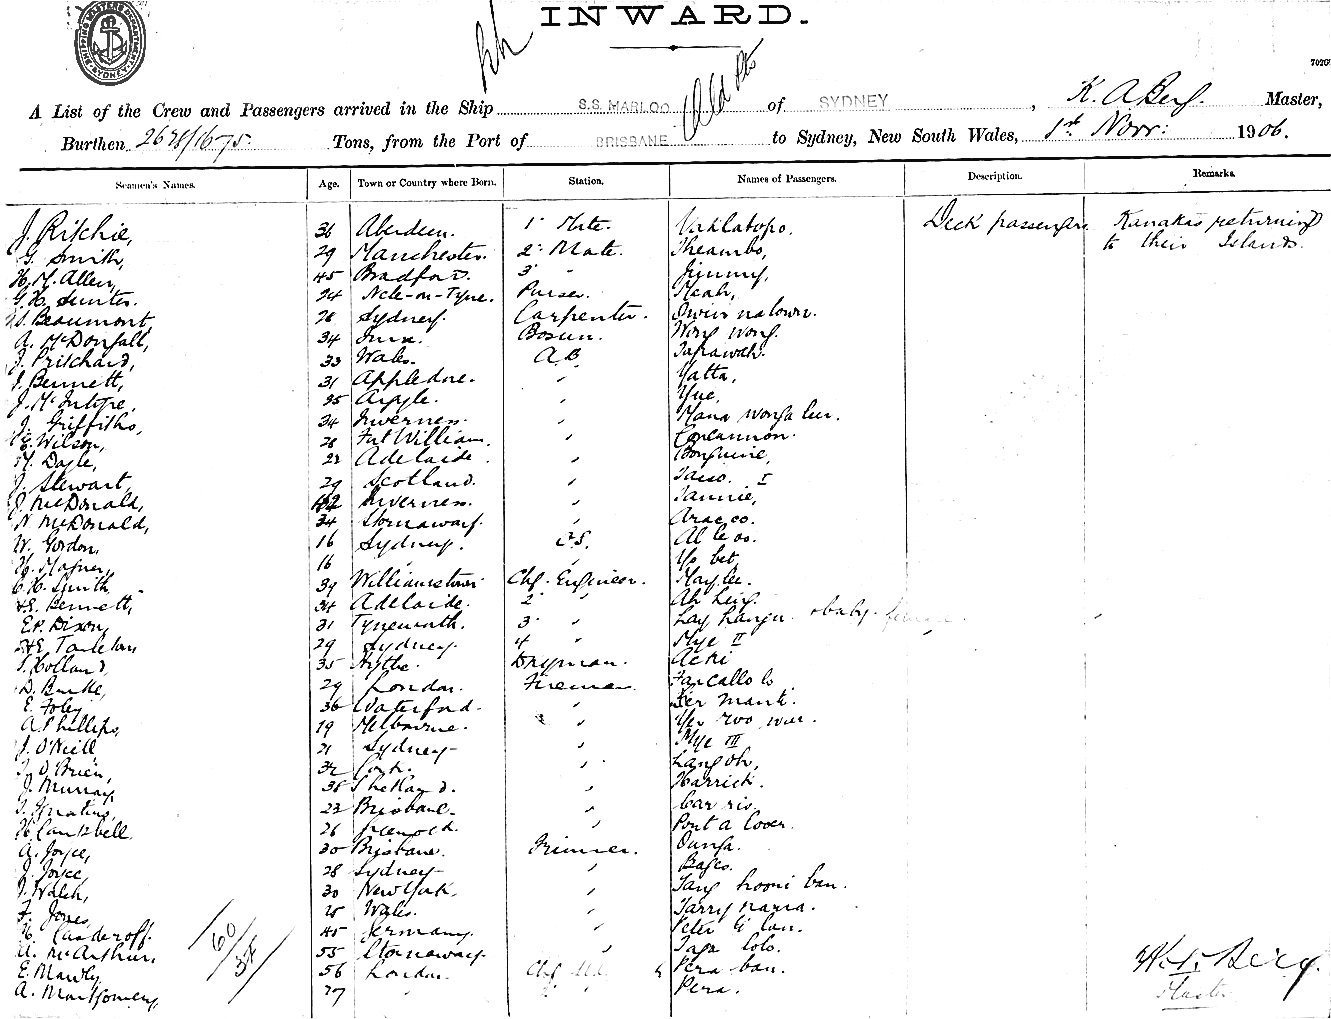 INWARD.
SHIPPING MASTERS DEPARTMENT SYDNEY
A List of the Crew and Passengers arrived in the Ship S.S. MARLOO of SYDNEY, K. A Berg. Master,
Burthen 2628/1675 Tons, from the Port of BRISBANE to Sydney, New South Wales, 1st Novr: 1906.
Seamen's Names. Age. Town or Country where Born. Station. Names of Passengers. Description. Remarks.
J. Ritchie, 36 Aberdeen. 1 Mte. Vaklatopo. Deck passengers Kanakas returning
to their Islands.
G. Smith, 29 Manchester. 2 Mate. Theambo,
H. M. Allen, 45 Bradford. 3 " Jimmy,
G. H. Sunter. 24 Ncle-on-Tyne. Purser. Meah,
W. Beaumont, 28 Sydney. Carpenter.
A. McDonfalt, 34 Bosun. Wong wong.
J. Pritchard, 33 Wales. A.B. Tafrawah.
J. Bennett, 31 Appledore. " Yatta,
J. McIntyre, 35 Argyle. " Yue,
J. Griffiths, 34 Inverness. " Mana wonga lur.
E. Wilson, 28 Fort William. " Concannon.
M. Dayle, 22 Adelaide. " Bonguine,
J. Stewart, 29 Scotland. " Taiso. I
J. McDonald, 42 Inverness. " Tannie,
N. McDonald, 34 Stornaway. " Araeco.
W. Gordon, 16 Sydney. O.S. Al le as.
H. Mafner, 16 " " Yo bet,
C. H. Smith, 39 Williamstown Chf. Engineer. May lee.
H.E. Bennett, 34 Adelaide. 2 " Ah Ling.
E.P. Dixon, 31 Tynemouth. 3 " Lay hangu. & baby
H.E. Tarleton 29 Sydney. 4 " Mye II
T. Holland, 35 Hythe. Dkyman. Acki
D. Burke, 29 London. Fireman. Farcallo lo
E. Foley 36 Waterford. " Ter mant.
A. Phillips, 19 Melbourne. " Yer roo war.
J. O'Neill 21 Sydney " Mye III
J. O'Brien, 32 Cork. " Langoh,
J. Murray, 38 Shetland. " Harrick.
J. Ignatius, 23 Brisbane. " Car ris
H. Campbell. 26 " Pont a Cover.
A. Joyce, 30 Brisbane. Trimmer. Ounga.
J. Joyce, 28 Sydney " Bages.
J. Walsh, 30 New York. " Tang hooni ban.
F. Jones, 25 Wales. " Tarry nama.
45 Germany. " Peter G lan.
A. McArthur, 55 Stornaway. " Taga lolo.
E. Mawly, 56 London. Chf. Pera ban.
A. Montgomery, 27 " Pera.
60/38
K. A. Berg.
Master